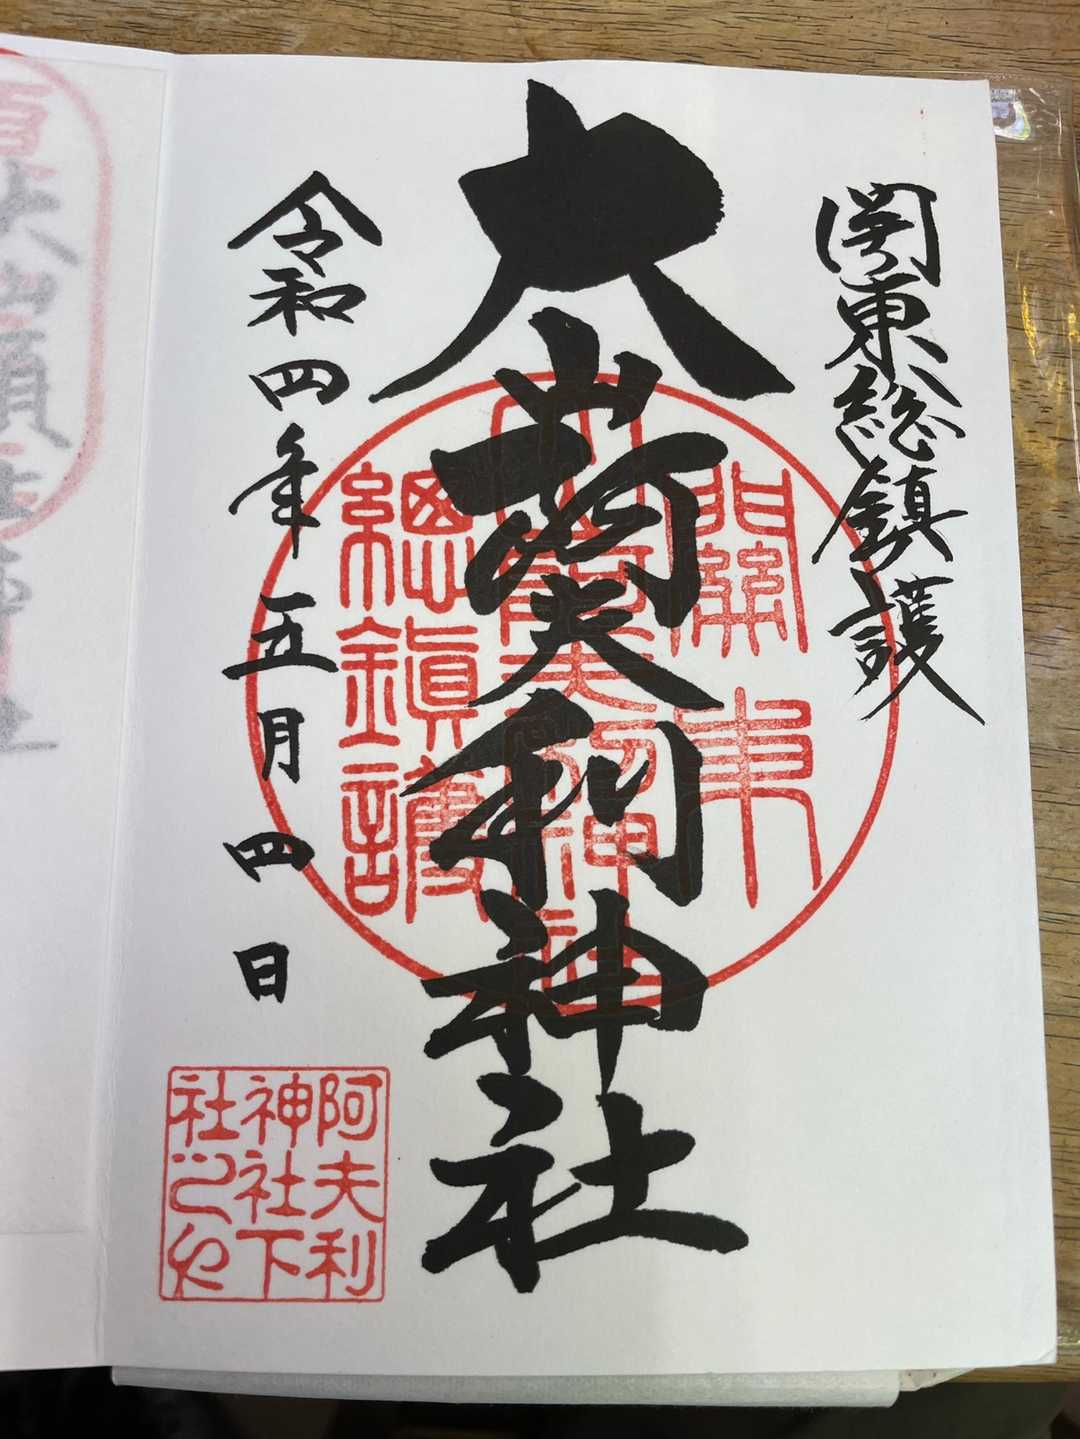 関東総鎮護
大山阿夫利神社
令和四年五月四日
關東
總鎮護
阿夫利
神社下
社之印